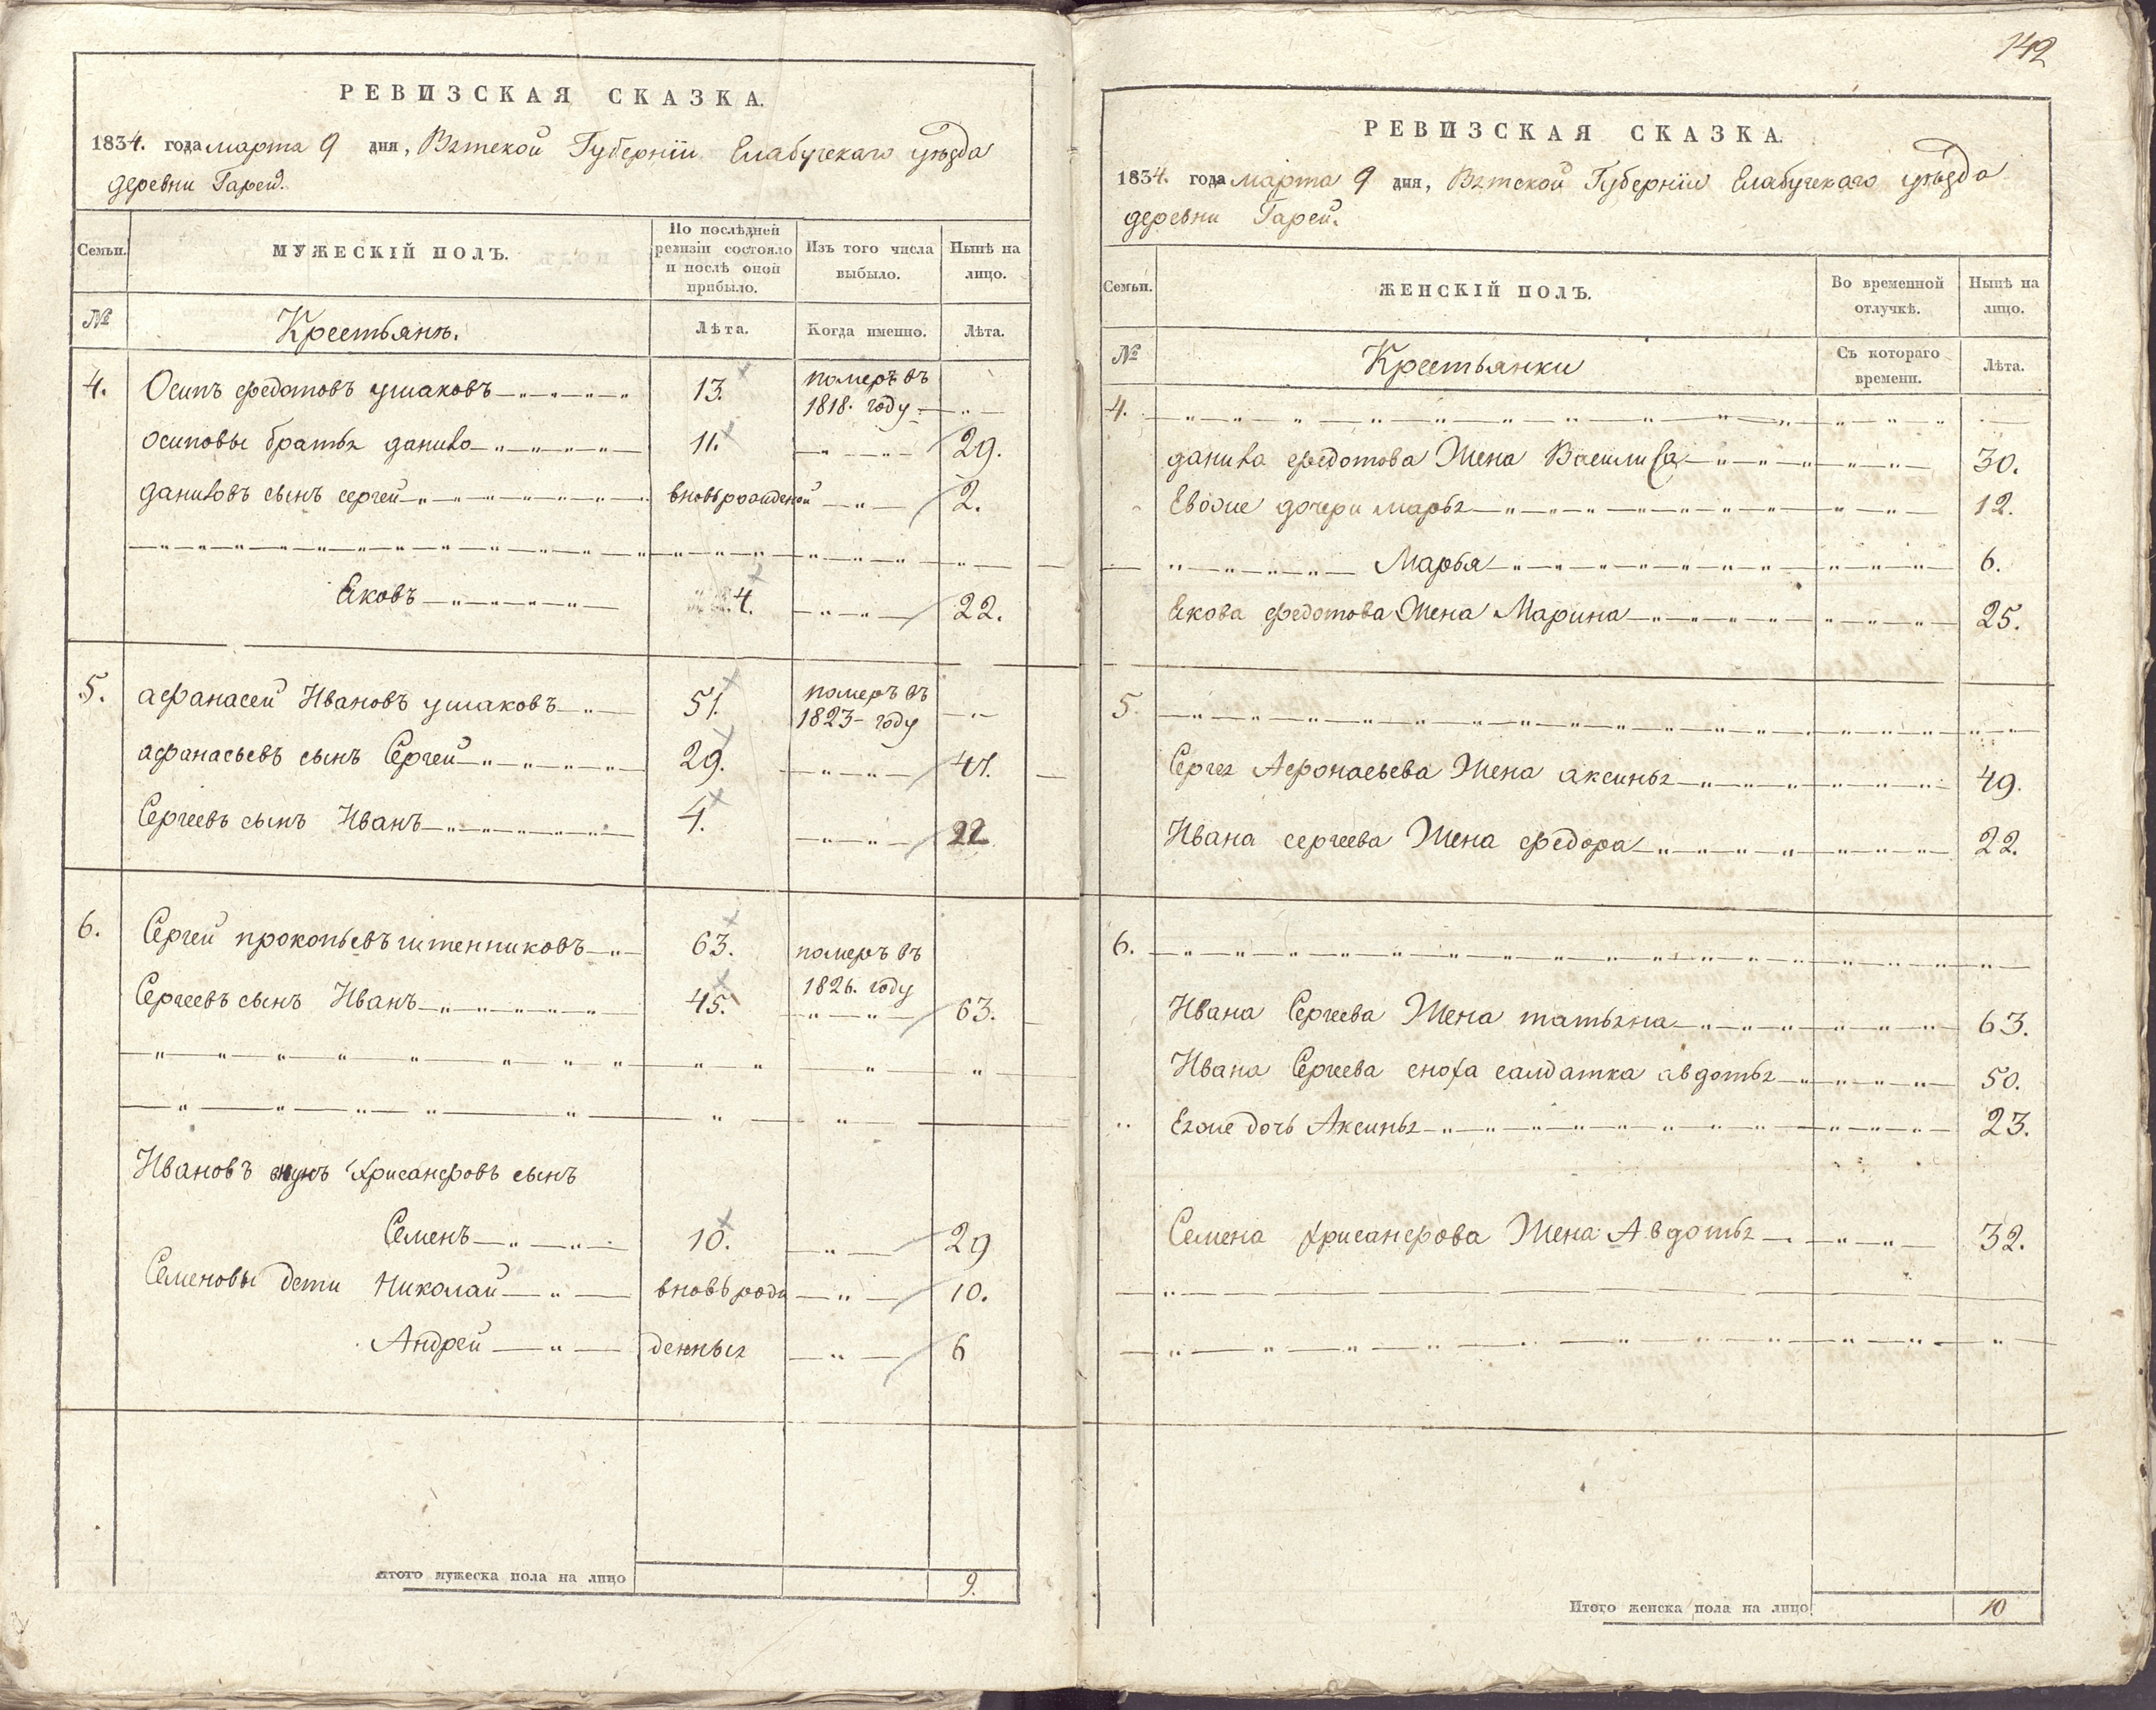 РЕВИЗСКАЯ СКАЗКА.
1834. года марта 9 дня, Вятской Губернiи Елабугскаго уѣзда
деревни Гарей.
Семьи. МУЖЕСКІЙ ПОЛЪ. По послѣдней ревизіи состояло и послѣ оной прибыло. Изъ того числа выбыло. Нынѣ на лицо.
№ Крестьянъ. Лѣта. Когда именно. Лѣта.
4. Осипъ федотовъ ушаковъ 13. померъ въ 1818. году
осиповы братья данило 11. 29.
даниловъ сынъ сергей вновьрожденой 2.
Яковъ 4. 22.
5. афанасей Ивановъ ушаковъ 51. померъ въ 1823 году
афанасьевъ сынъ Сергей 29. 47.
Сергеевъ сынъ Иванъ 4. 22
6. Сергей прокопьевъ 63. померъ въ 1826. году
Сергеевъ сынъ Иванъ 45. 63.
Ивановъ внукъ Хрисанфовъ сынъ
Семенъ 10. 29
Семеновы дети Николай вновьрож 10.
Андрей денныя 6
Итого мужеска пола на лицо 9.
142
РЕВИЗСКАЯ СКАЗКА.
1834. года марта 9 дня, Вятской Губернiи Елабугскаго уѣзда
деревни Гарей.
Семьи. ЖЕНСКІЙ ПОЛЪ. Во временной отлучкѣ. Нынѣ на лицо.
№ Крестьянки Съ котораго времени. Лѣта.
4.
данила федотова Жена Василиса 30.
Евоже дочери марья 12.
Марья 6.
Якова федотова Жена Марина 25.
5
Сергея Афонасьева Жена аксинья 49.
Ивана сергеева Жена федора 22.
6.
Ивана Сергеева Жена татьяна 63.
Ивана Сергеева сноха салдатка авдотья 50.
Еяже дочь Аксинья 23.
Семена Хрисанфова Жена Авдотья 32.
Итого женска пола на лицо 10